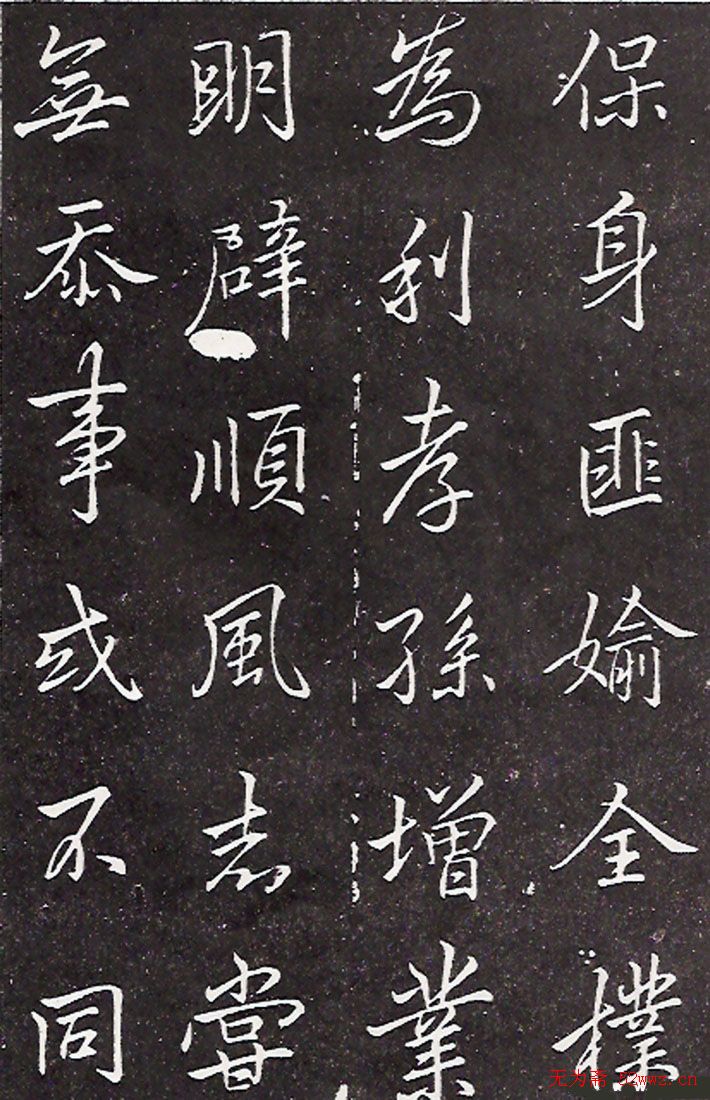 保身匪媮全樸
為利孝孫增業
明辟順風志嘗
無忝事或不同
无为斋 52wwz.cn